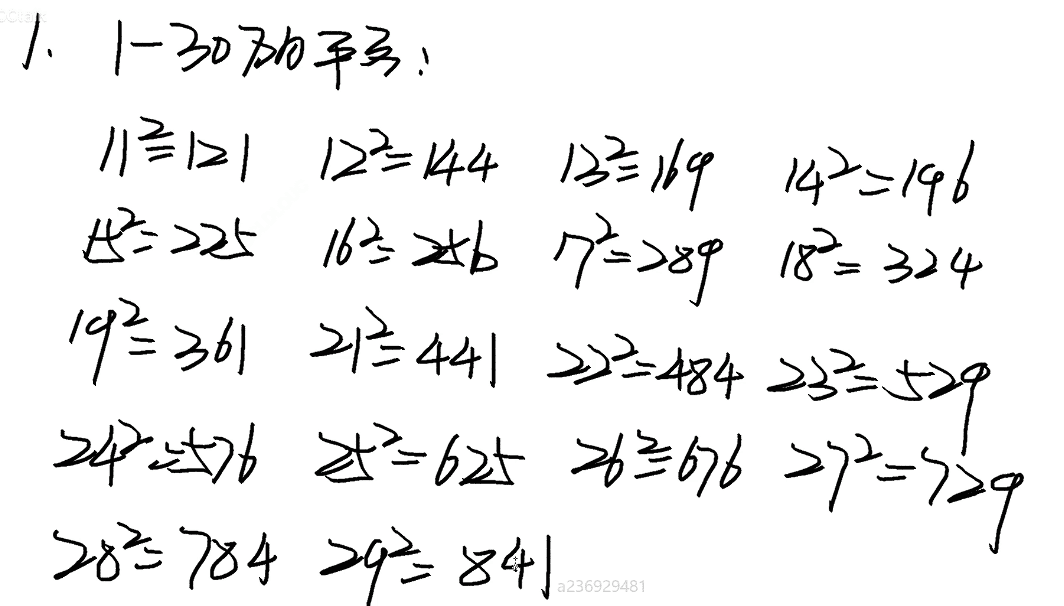 1. 1-30的平方:
11²=121 12²=144 13²=169 14²=196
15²=225 16²=256 17²=289 18²=324
19²=361 21²=441 22²=484 23²=529
24²=576 25²=625 26²=676 27²=729
28²=784 29²=841
a236929481